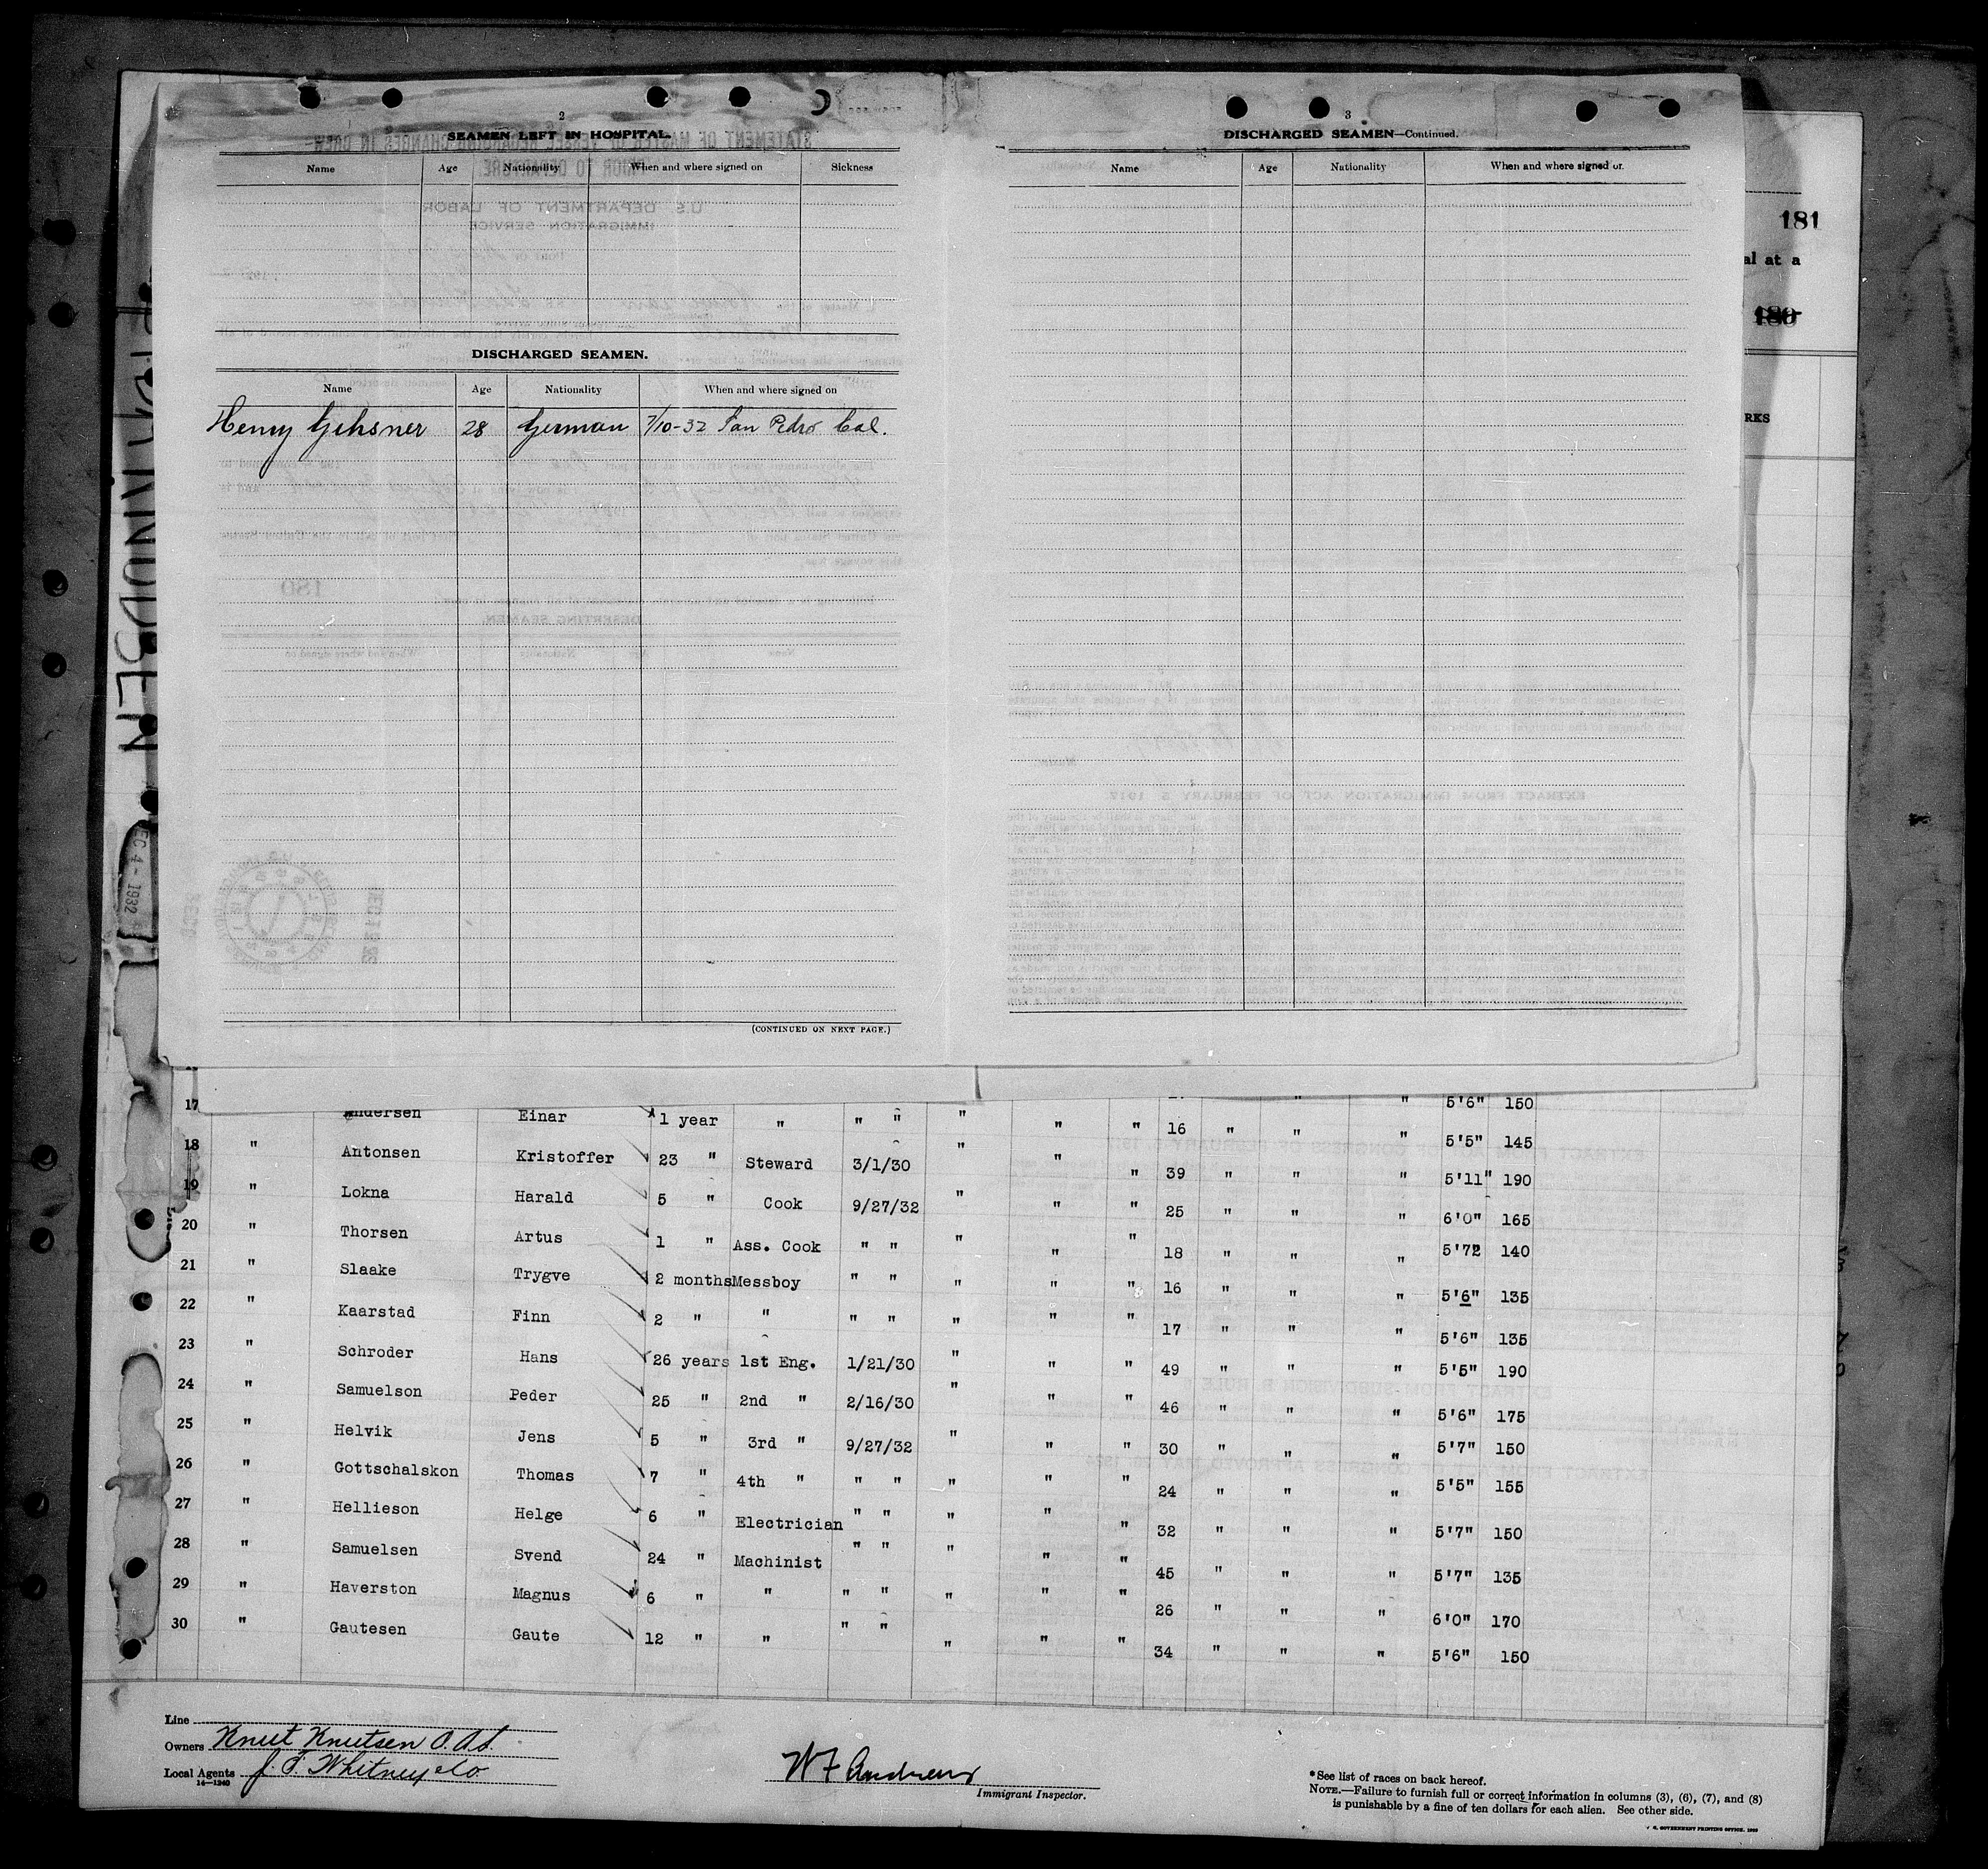 2
SEAMEN LEFT IN HOSPITAL.
Name Age Nationality When and where signed on Sickness
DISCHARGED SEAMEN.
Name Age Nationality When and where signed on
Henry Gehsner 28 German 7/10-32 San Pedro Cal.
(CONTINUED ON NEXT PAGE.)
3
DISCHARGED SEAMEN—Continued.
Name Age Nationality When and where signed or.
181
al at a
180
RKS
DEC 4 - 1932
17 Andersen Einar 1 year " " " " " " 16 " " " 5'6" 150
18 " Antonsen Kristoffer 23 " Steward 3/1/30 " " " 39 " " " 5'5" 145
19 " Lokna Harald 5 " Cook 9/27/32 " " " 25 " " " 5'11" 190
20 " Thorsen Artus 1 " Ass. Cook " " " " " 18 " " " 6'0" 165
21 " Slaake Trygve 2 months Messboy " " " " " 16 " " " 5'7½ 140
22 " Kaarstad Finn 2 " " " " " " " 17 " " " 5'6" 135
23 " Schroder Hans 26 years 1st Eng. 1/21/30 " " " 49 " " " 5'6" 135
24 " Samuelson Peder 25 " 2nd " 2/16/30 " " " 46 " " " 5'5" 190
25 " Helvik Jens 5 " 3rd " 9/27/32 " " " 30 " " " 5'6" 175
26 " Gottschalskon Thomas 7 " 4th " " " " " " 24 " " " 5'7" 150
27 " Hellieson Helge 6 " Electrician " " " " " 32 " " " 5'5" 155
28 " Samuelsen Svend 24 " Machinist " " " " " 45 " " " 5'7" 150
29 " Haverston Magnus 6 " " " " " " " 26 " " " 5'7" 135
30 " Gautesen Gaute 12 " " " " " " " 34 " " " 6'0" 170
5'6" 150
Line
Owners Knut Knutsen O.A.S.
Local Agents J. F. Whitney & Co
14—1240
W F Andrews
Immigrant Inspector.
*See list of races on back hereof.
NOTE.—Failure to furnish full or correct information in columns (3), (6), (7), and (8)
is punishable by a fine of ten dollars for each alien. See other side.